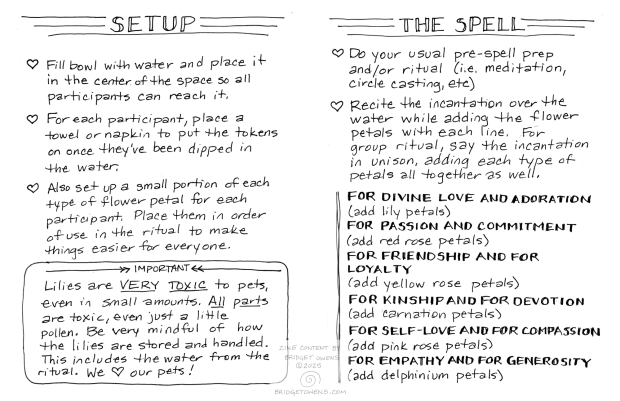 SETUP
Fill bowl with water and place it
in the center of the space so all
participants can reach it.
For each participant, place a
towel or napkin to put the tokens
on once they've been dipped in
the water.
Also set up a small portion of each
type of flower petal for each
participant. Place them in order
of use in the ritual to make
things easier for everyone.
IMPORTANT
Lilies are VERY TOXIC to pets,
even in small amounts. All parts
are toxic, even just a little
pollen. Be very mindful of how
the lilies are stored and handled.
This includes the water from the
ritual. We ♡ our pets!
THE SPELL
Do your usual pre-spell prep
and/or ritual (i.e. meditation,
circle casting, etc)
Recite the incantation over the
water while adding the flower
petals with each line. For
group ritual, say the incantation
in unison, adding each type of
petals all together as well.
FOR DIVINE LOVE AND ADORATION
(add lily petals)
FOR PASSION AND COMMITMENT
(add red rose petals)
FOR FRIENDSHIP AND FOR
LOYALTY
(add yellow rose petals)
FOR KINSHIP AND FOR DEVOTION
(add carnation petals)
FOR SELF-LOVE AND FOR COMPASSION
(add pink rose petals)
FOR EMPATHY AND FOR GENEROSITY
(add delphinium petals)
ZINE CONTENT BY
BRIDGET OWENS
©2025
BRIDGETOWENS.COM